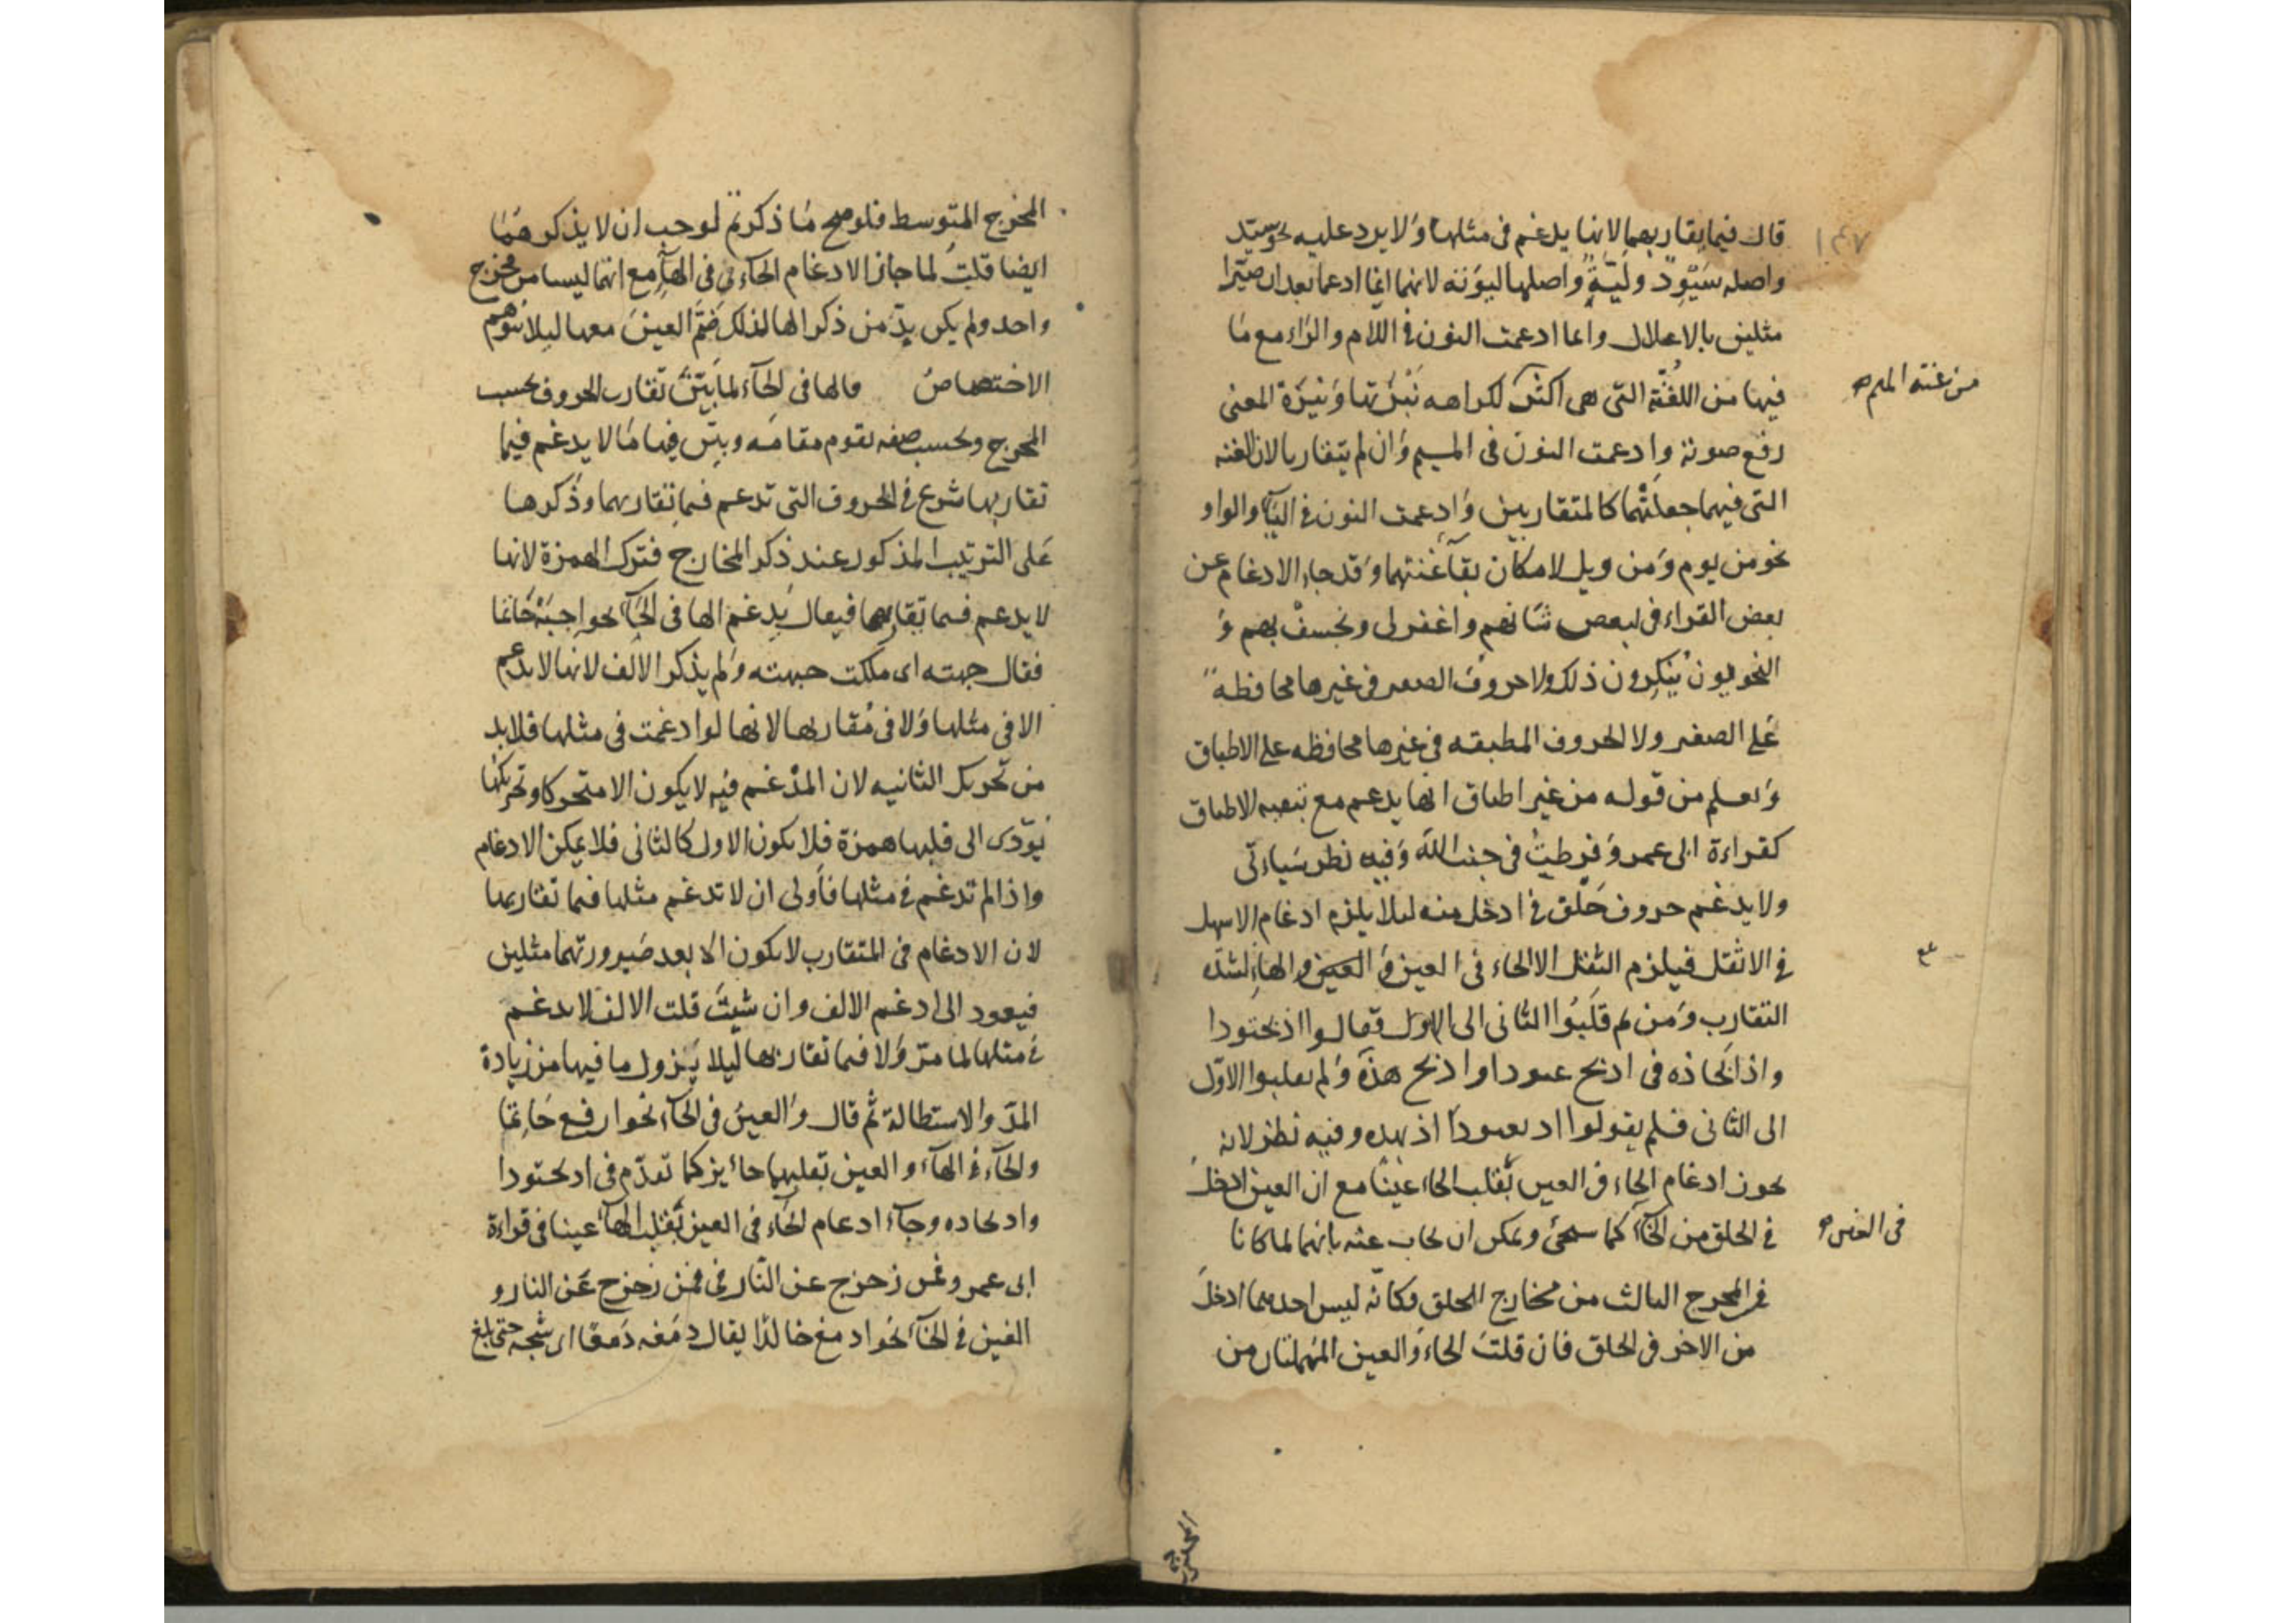 قال فيما يقاربهما لانها يدغم فى مثلها ولا يرد عليه نحو سيّد
واصله سَيْوِد ولَيّة واصلها ليونه لانهما انما ادعما بعد ان صيّرا
مثلين بالاعلال وانما ادعمت النون فى اللام والراء مع ما
فيها من اللغنّة التى هى اكثر لكراهه نَبْرتها ونبرة المعنى
رفع صوته وادعمت النون فى الميم وان لم يتقاربا لان الغنه
التى فيهما جعلتهما كالمتقاربين وادعمت النون فى اليآء والواو
نحو من يوم ومن ويل لامكان بقآء غنتهما وقد جاء الادغام عن
بعض القراء فى لبعض شانهم واغفر لى ونخسف بهم وَ
النحويون ينكرون ذلك ولا حروف الصفير فى غيرها محافظة
على الصفير ولا الحروف المطبقه فى غيرها محافظه على الاطباق
ويعلم من قوله من غير اطباق انها يدعم مع تبعيه الاطباق
كقراءة ابى عمرو فرطتُ فى جنب الله وفيه نظر سياءتى
ولا يدغم حروف حَلْق فى ادخل منه ليلا يلزم ادغام الاسهل
فى الاثقل فيلزم الثقل الا الحاء فى العين و العين والهاء لشدّه
التقارب ومن ثم قلبُوا الثانى الى الاول فقالوا اذبحتودا
واذ بحاذه فى اذبح عتودا واذبح هذه ولم يقلبوا الاوّل
الى الثانى فلم يقولوا اذبعتودا اذبهذه وفيه نظر لانه
يجوز ادغام الحاء فى العين بقلب الحاء عينا مع ان العين ادخل
فى الحلق من الحآء كما سيجئ ويمكن ان يجاب عنه بانهما لما كانا
فى المخرج الثالث من مخارج الحلق فكانّه ليس احدهما ادخل
من الاخر فى الحلق فان قلت الحاء والعين المهملتان من
١٤٧
من غنته الميم صح
فى العين صح
المخرج المتوسط فلو صح ما ذكرتم لوجب ان لا يذكرهما
ايضا قلت لما جاز الادغام الحاء فى الهآء مع انهما ليسا من مخرج
واحد ولم يكن بدّ من ذكر الها لذلك ضمّ العين معها ليلا يتوهم
الاختصاص فالها فى الحآء لما بيّن تقارب الحروف بحسب
المخرج وبحسب صفه تقوم مقامه وبيّن فيها ما لا يدغم فيما
تقاربها شرع فى الحروف التى تدعم فيما تقاربها وذكرها
على الترتيب المذكور عند ذكر المخارج فترك الهمزة لانها
لا يدعم فيما تقاربها فيقال يدغم الها فى الحآء نحو اجبَهْ حَاتما
فقال جبهته اى ملكت جبهته ولم يذكر الالف لانها لا تدغم
الا فى مثلها ولا فى مُقاربها لانها لو ادغمت فى مثلها فلا بد
من تحريك الثانيه لان المدْغم فيه لا يكون الا متحركا وتحريكها
يؤدى الى قلبها همزة فلا يكون الاول كالثانى فلا يمكن الادغام
واذا لم تدغم فى مثلها فاولى ان لا تدغم مثلها فيما تقاربها
لان الادغام فى المتقارب لا يكون الا بعد صيرورتهما مثلين
فيعود الى ادغم الالف وان شيت قلت الالف لا يدغم
فى مثلها لما مرّ ولا فيما تقاربها ليلا يزول ما فيها من زيادة
المدّ والاستطالة ثم قال والعين فى الحآء نحو ارفع حاتما
والحآء فى الهآء والعين بقلبهما حائين كما تقدّم فى اذبحتودا
واذبحاذه وجآء ادعام الحآء فى العين بقلب الحآء عينا فى قراءة
ابى عمرو فمن زحزح عن النّار فى فمن زحزح عَن النار و
الغين فى الخآء نحو ادمغ خالدًا يقال دمَغه دَمغا اى شجّه حتى بلغ